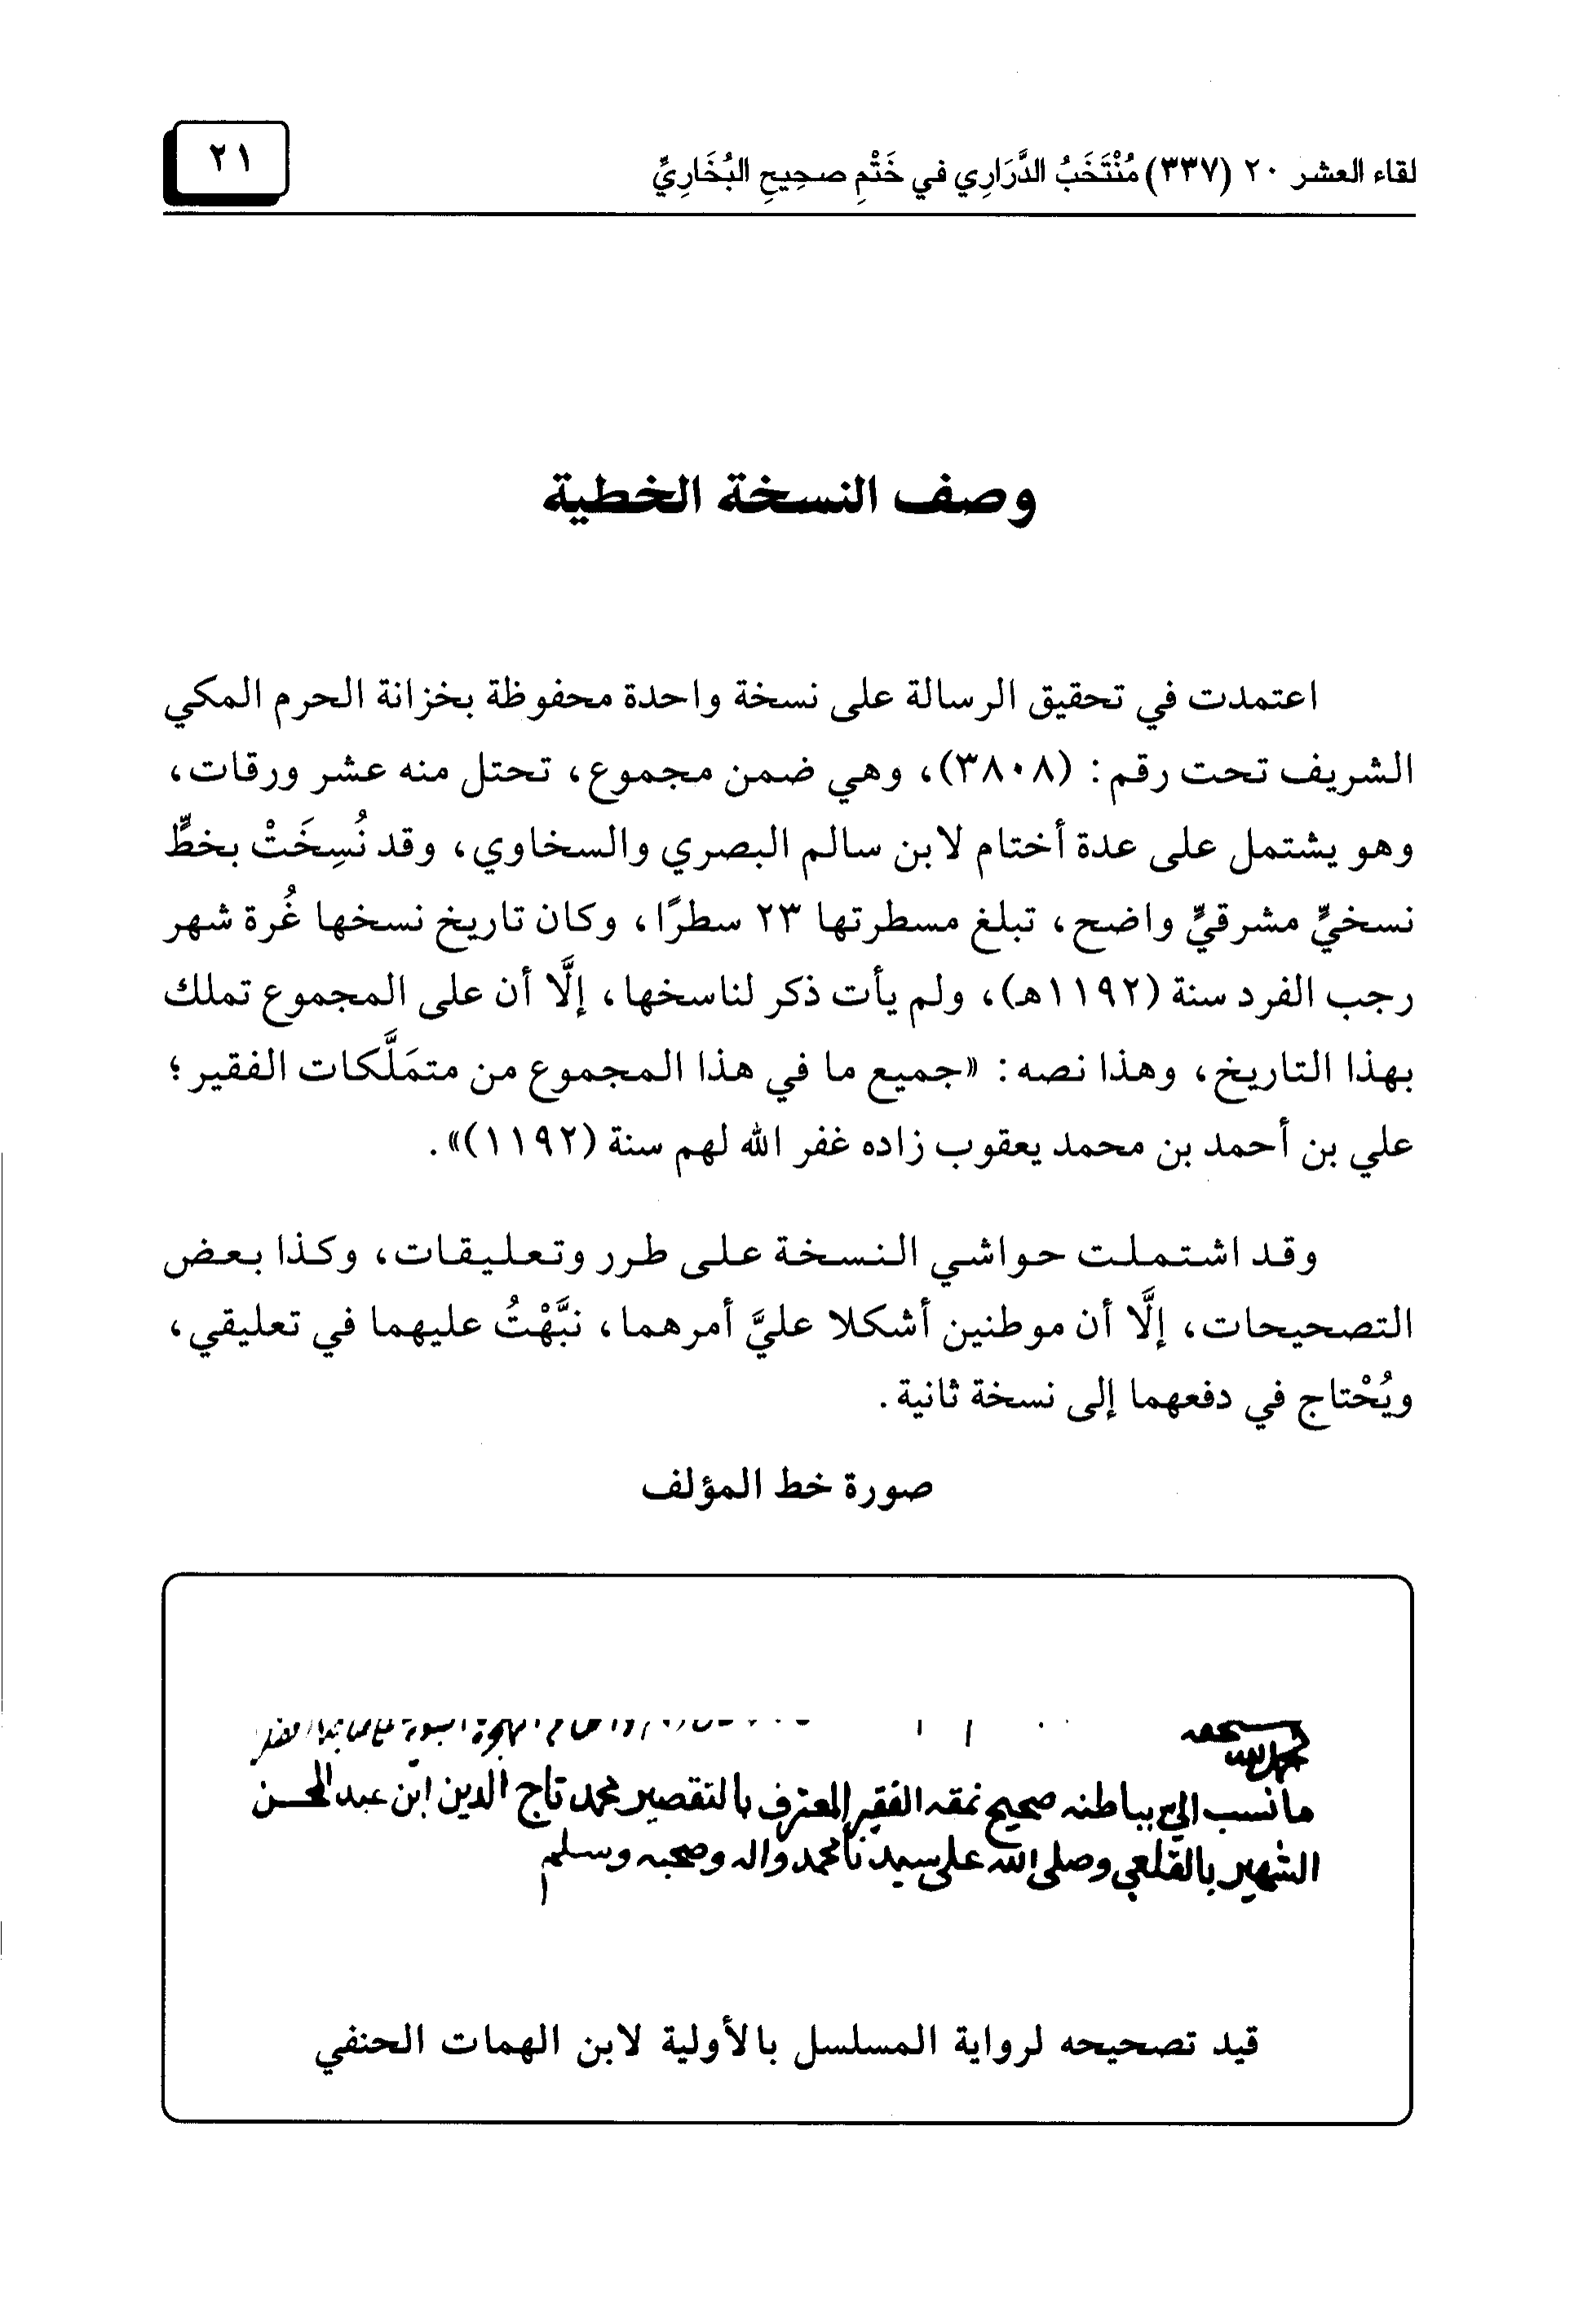 لقاء العشر ٢٠ (٣٣٧) مُنْتَخَبُ الدَّرَارِي في خَتْمِ صحِيحِ البُخَارِيِّ
٢١
وصف النسخة الخطية
اعتمدت في تحقيق الرسالة على نسخة واحدة محفوظة بخزانة الحرم المكي
الشريف تحت رقم: (٣٨٠٨)، وهي ضمن مجموع، تحتل منه عشر ورقات،
وهو يشتمل على عدة أختام لابن سالم البصري والسخاوي، وقد نُسِخَتْ بخطٍّ
نسخيٍّ مشرقيٍّ واضح، تبلغ مسطرتها ٢٣ سطرًا، وكان تاريخ نسخها غُرة شهر
رجب الفرد سنة (١١٩٢هـ)، ولم يأت ذكر لناسخها، إلَّا أن على المجموع تملك
بهذا التاريخ، وهذا نصه: «جميع ما في هذا المجموع من متمَلَّكات الفقير؛
علي بن أحمد بن محمد يعقوب زاده غفر الله لهم سنة (١١٩٢)».
وقد اشتملت حواشي النسخة على طرر وتعليقات، وكذا بعض
التصحيحات، إلَّا أن موطنين أشكلا عليَّ أمرهما، نبَّهْتُ عليهما في تعليقي،
ويُحْتاج في دفعهما إلى نسخة ثانية.
صورة خط المؤلف
ما نسب الي بباطنه صحيح نمقه الفقير المعترف بالتقصير محمد تاج الدين ابن عبد المحسن
الشهير بالقلعي وصلى الله على سيدنا محمد واله وصحبه وسلم
قيد تصحيحه لرواية المسلسل بالأولية لابن الهمات الحنفي